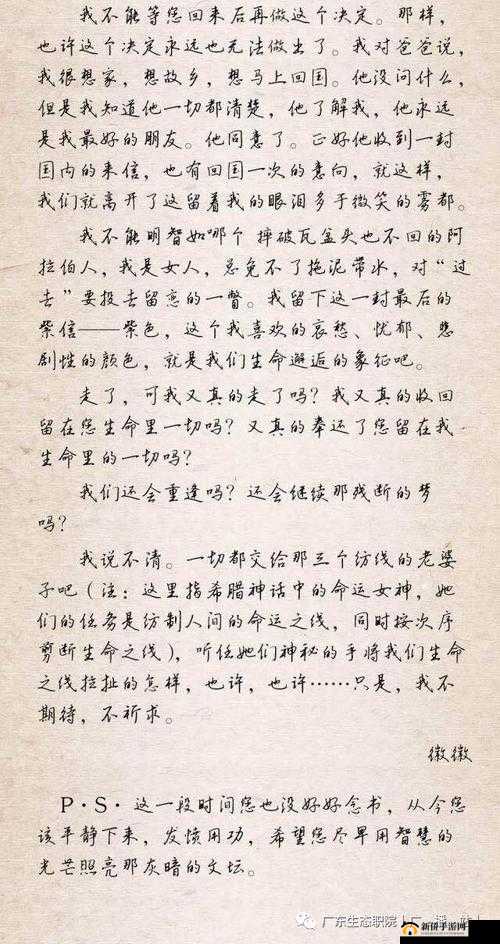 我不能等您回来后再做这个决定。那样，
也许这个决定永远也无法做出了。我对爸爸说，
我很想家，想故乡，想马上回国。他没问什么，
但是我知道他一切都清楚，他了解我，他永远
是我最好的朋友。他同意了。正好他收到一封
国内的来信，也有回国一次的意向，就这样，
我们就离开了这留着我的眼泪多于微笑的雾都。
我不能明智如哪个 摔破瓦盆头也不回的阿
拉伯人，我是女人，总免不了拖泥带水，对“过
去”要投去留恋的一瞥。我留下这一封最后的
紫信——紫色，这个我喜欢的哀愁、忧郁、悲
剧性的颜色，就是我们生命邂逅的象征吧。
走了，可我又真的走了吗？我又真的收回
留在您生命里一切吗？又真的奉还了您留在我
生命里的一切吗？
我们还会重逢吗？还会继续那残断的梦
吗？
我说不清。一切都交给那三个纺线的老婆
子吧（注：这里指希腊神话中的命运女神，她
们的任务是纺制人间的命运之线，同时按次序
剪断生命之线），听任她们神秘的手将我们生命
之线拉扯的怎样，也许，也许……只是，我不
期待，不祈求。
徽徽
P·S· 这一段时间您也没好好念书，从今您
该平静下来，发愤用功，希望您尽早用智慧的
光芒照亮那灰暗的文坛。
广东生态职院
新侠手游网